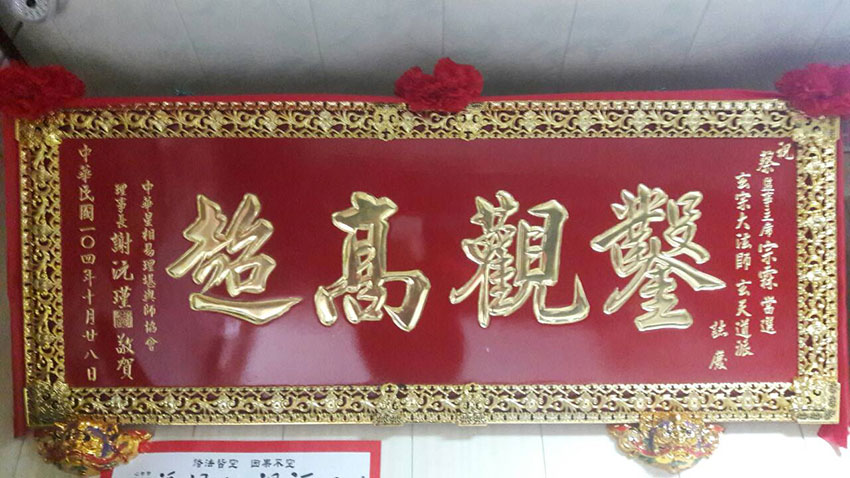 祝
蔡 主席 宗霖 當選
玄宗大法師 玄天道派
誌慶
鑿觀高超
中華星相易理堪輿師協會
理事長 謝沅瑾 敬賀
中華民國一〇四年十月廿八日
諸法皆空 因果不空